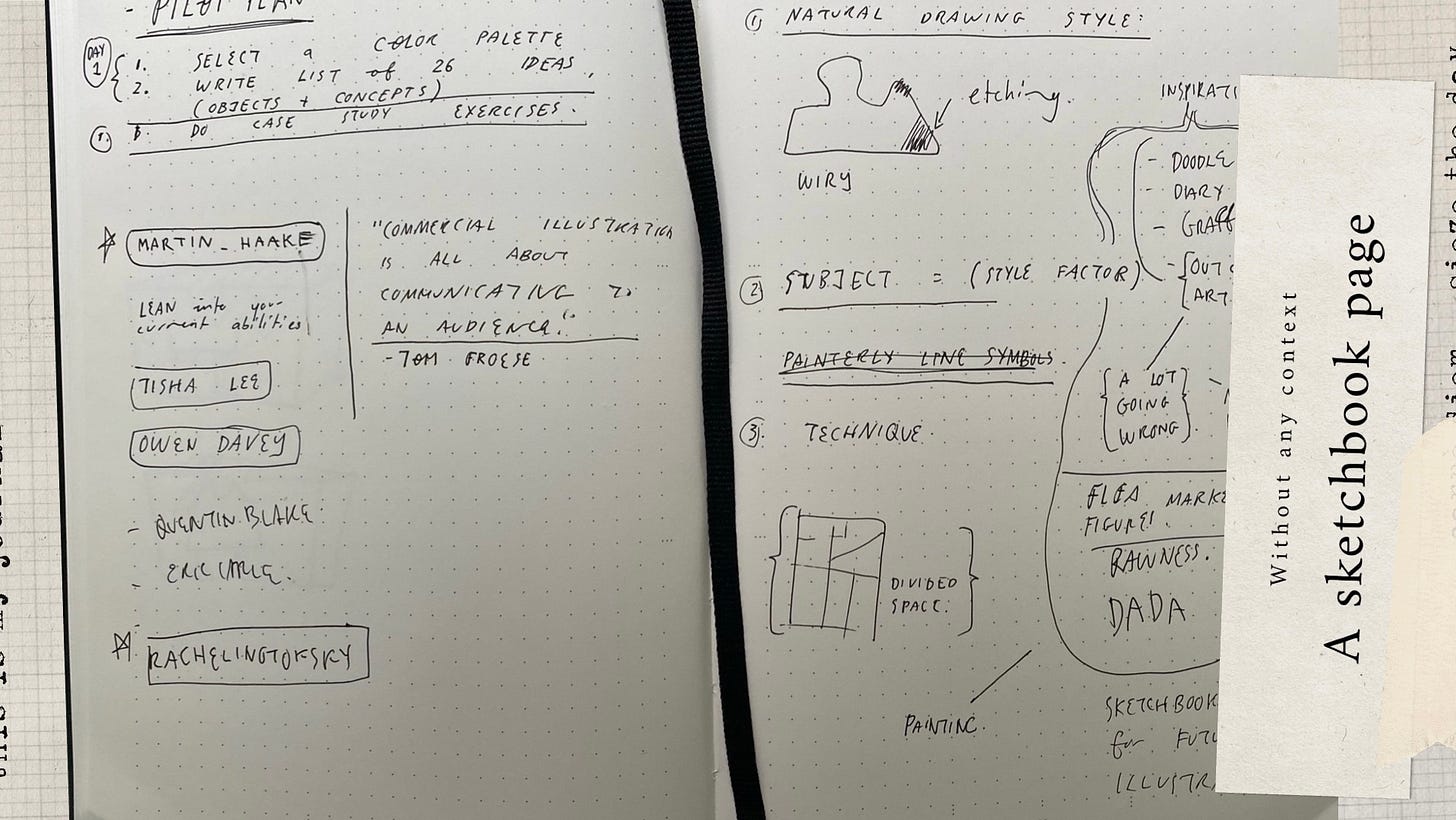 - PILOT PLAN
DAY 1
1. SELECT a COLOR PALETTE
2. WRITE LIST of 26 IDEAS,
(OBJECTS + CONCEPTS)
1. DO CASE STUDY EXERCISES.
MARTIN_HAAKE
LEAN into your
current abilities
TISHA LEE
OWEN DAVEY
- QUENTIN BLAKE
- ERIC CARLE.
"COMMERCIAL ILLUSTRATION
IS ALL ABOUT
COMMUNICATING TO
AN AUDIENCE."
- TOM FROESE
1) NATURAL DRAWING STYLE:
etching.
WIRY
2) SUBJECT = (STYLE FACTOR)
PAINTERLY LINE SYMBOLS.
3). TECHNIQUE.
DIVIDED
SPACE.
PAINTING.
INSPIRATI
- DOODLE
- DIARY
- GRAFF
- OUT
ART.
A LOT
GOING
WRONG
FLEA MARKE
FIGURE!
RAWNESS.
DADA
SKETCHBOOK
for FUTU
ILLUSTRA
Without any context
A sketchbook page